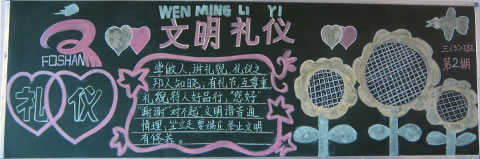 WEN MING LI YI
文明礼仪
FOSHAN
礼仪
学做人,讲礼貌,礼仪之
邦人知晓,有礼节互尊重
礼貌待人好品行,"您好"
谢谢 对不起,文明语言通
情理,坐立走要端正举止文明
有修养。
第2期